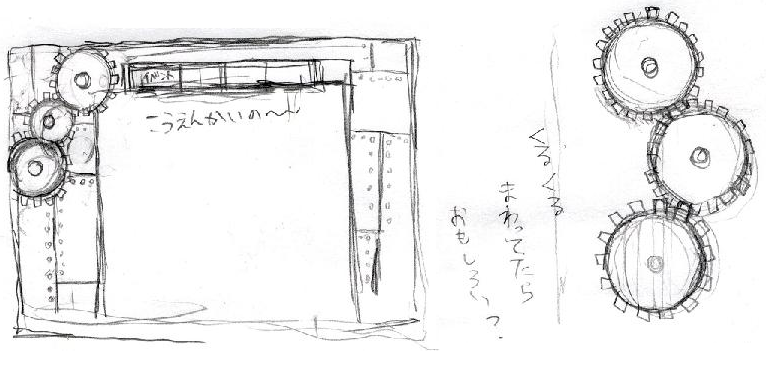 イベント
こうえんかいの〜
くるくる
まわってたら
おもしろい?